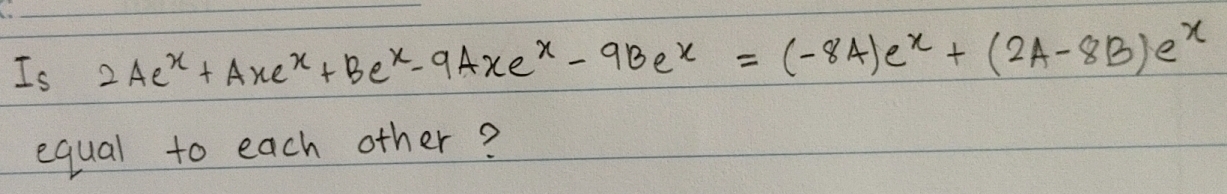 Is 2Ae^x + Axe^x + Be^x - 9Axe^x - 9Be^x = (-8A)e^x + (2A-8B)e^x
equal to each other ?